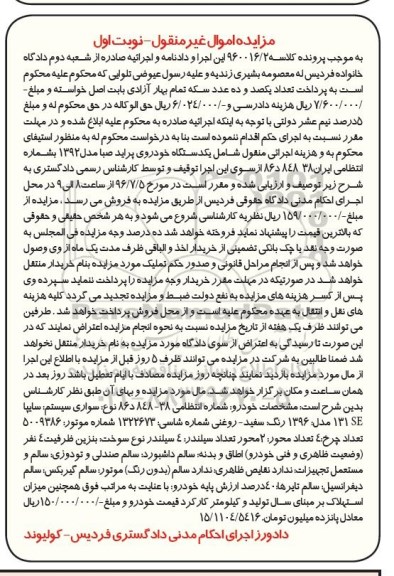 مزایده اموال غیر منقول - نوبت اول
به موجب پرونده کلاسه ۹۶۰۰۱۶/۲ این اجرا و دادنامه و اجرائیه صادره از شعبه دوم دادگاه
خانواده فردیس له معصومه بشیری زندیه و علیه رسول عیوضی تلوایی که محکوم علیه محکوم
است به پرداخت تعداد یکصد و ده عدد سکه تمام بهار آزادی بابت اصل خواسته و مبلغ-
/۷/۶۰۰/۰۰۰ ریال هزینه دادرسی و-/۶/۰۲۴/۰۰۰ ریال حق الوکاله در حق محکوم له و مبلغ
۵درصد نیم عشر دولتی با توجه به اینکه اجرائیه صادره به محکوم علیه ابلاغ شده و در مهلت
مقرر نسبت به اجرای حکم اقدام ننموده است بنا به درخواست محکوم له به منظور استیفای
محکوم به و هزینه اجرائی منقول شامل یکدستگاه خودروی پراید صبا مدل۱۳۹۲ بشماره
انتظامی ایران۳۸ ۸۴۸ د۸۶ ازسوی این اجرا توقیف و توسط کارشناس رسمی دادگستری به
شرح زیر توصیف و ارزیابی شده و مقرر است در مورخ ۹۶/۷/۵ از ساعت۸ الی۹ در محل
اجرای احکام مدنی دادگاه حقوقی فردیس از طریق مزایده به فروش می رسد . مزایده از
مبلغ-/۱۵۹/۰۰۰/۰۰۰ ریال نظریه کارشناسی شروع می شود و به هر شخص حقیقی و حقوقی
که بالاترین قیمت را پیشنهاد نماید فروخته خواهد شد ده درصد وجه مزایده فی المجلس به
صورت وجه نقد یا چک بانکی تضمینی از خریدار اخذ و الباقی ظرف مدت یک ماه از وی وصول
خواهد شد و پس از انجام مراحل قانونی و صدور حکم تملیک مورد مزایده بنام خریدار منتقل
خواهد شد در صورتیکه در مهلت مقرر خریدار وجه مزایده را پرداخت ننماید سپرده وی
پس از کسر هزینه های مزایده به نفع دولت ضبط و مزایده تجدید می گردد کلیه هزینه
های نقل و انتقال به عهده محکوم علیه است و از محل فروش پرداخت خواهد شد . طرفین
می توانند ظرف یک هفته از تاریخ مزایده نسبت به نحوه انجام مزایده اعتراض نمایند که در
این صورت تا رسیدگی به اعتراض از سوی دادگاه مورد مزایده به نام خریدار منتقل نخواهد
شد ضمنا طالبین به شرکت در مزایده می توانند ظرف ۵ روز قبل از مزایده با اطلاع این اجرا
از مال مورد مزایده بازدید نمایند چنانچه روز مزایده مصادف با ایام تعطیل باشد روز بعد در
همان ساعت و مکان برگزار خواهد شد مال مورد مزایده و بهای آن طبق نظر کارشناس
بدین شرح است: مشخصات خودرو: شماره انتظامی ۳۸-۸۴۸ د ۸۶ نوع: سواری سیستم: سایپا
SE ۱۳۱ مدل: ۱۳۹۶ رنگ: سفید- روغنی شماره شاسی: ۱۳۲۲۶۷۳ شماره موتور: ۵۰۰۹۳۸۶
تعداد چرخ:۴ تعداد محور: ۲محور تعداد سیلندر: ۴ سیلندر نوع سوخت: بنزین ظرفیت۴ نفر
(وضعیت ظاهری و فنی خودرو) اطاق و بدنه: سالم داشبورد: سالم صندلی و تودوزی: سالم و
مستعمل تجهیزات: ندارد نقایص ظاهری: ندارد سالم (بدون رنگ) موتور: سالم گیربکس: سالم
دیفرانسیل: سالم تایرها: ۴۰درصد ارزش پایه خودرو: با عنایت به مراتب فوق همچنین میزان
استهلاک بر مبنای سال تولید و کیلومتر کارکرد قیمت خودرو و مبلغ-/۱۵۰/۰۰۰/۰۰۰ریال
معادل پانزده میلیون تومان. ۱۵/۱۱۰۴/۵۴۱۶
دادورز اجرای احکام مدنی دادگستری فردیس - کولیوند